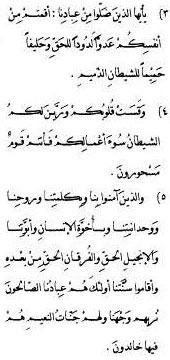 (٣) يأيها الذين ضلوا من عبادنا: أقمتم من
أنفسكم عدوا لدودا للحق وحليفا
حميما للشيطان الذميم.
(٤) وقست قلوبكم وزين لكم
الشيطان سوء أعمالكم فأنتم قوم
مسحورون.
(٥) والذين آمنوا بنا وبكلمتنا وروحنا
ووحدانيتنا وبأخوة الإنسان وأبوتنا
والإنجيل الحق والفرقان الحق من بعده
وأقاموا سنتنا أولئك هم عبادنا الصالحون
نريهم وجهنا ولهم جنات النعيم هم
فيها خالدون.